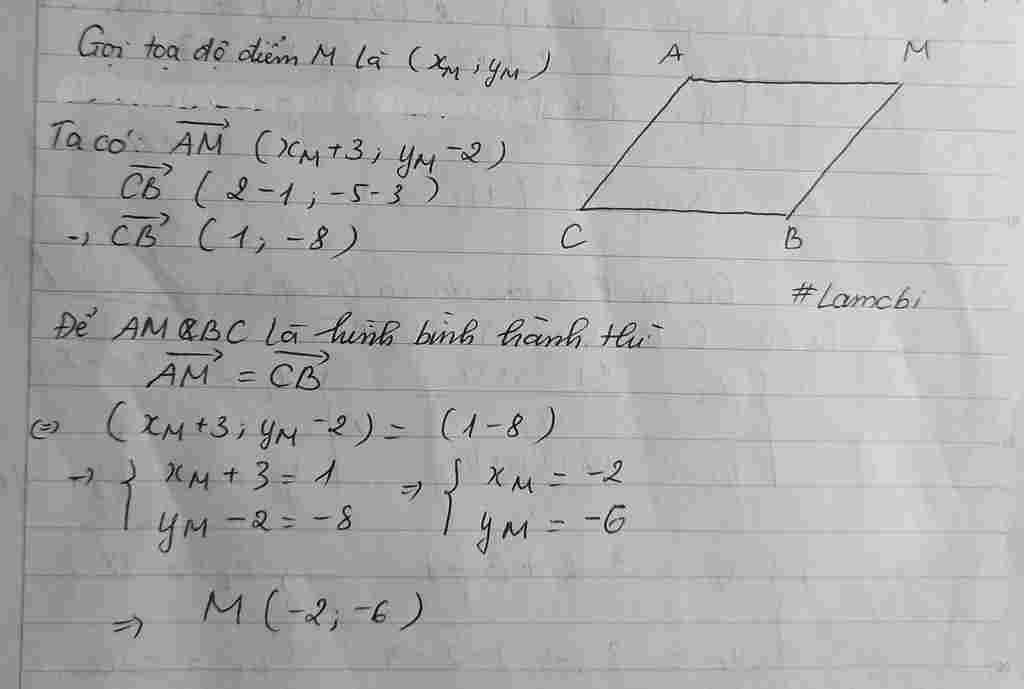 Gọi toạ độ điểm M là (xM; yM)
A
M
Ta có: AM (xM+3; yM-2)
CB (2-1; -5-3)
→ CB (1; -8)
C
B
#Lamcbi
Để AMBC là hình bình hành thì
AM = CB
⇔ (xM+3; yM-2) = (1-8)
→ { xM + 3 = 1 ⇒ { xM = -2
yM - 2 = -8 yM = -6
⇒ M (-2; -6)